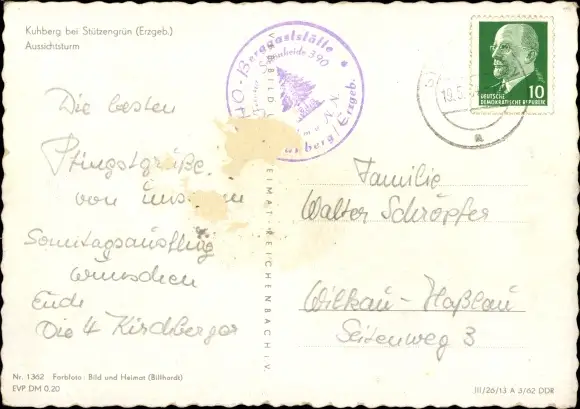 Kuhberg bei Stützengrün (Erzgeb.)
Aussichtsturm
HO-Berggaststätte
390
Kuhberg/Erzgeb.
10
DEUTSCHE
DEMOKRATISCHE REPUBLIK
19.5.
Die besten
Pfingstgrüße
von
Sonntagsausflug
wünschen
Euch
Die 4 Kirchberger
HEIMAT REICHENBACH i.V.
Familie
Walter Schröpfer
Wilkau-Haßlau
Seitenweg 3
Nr. 1362 Farbfoto: Bild und Heimat (Billhardt)
EVP DM 0,20
III/26/13 A 3/62 DDR